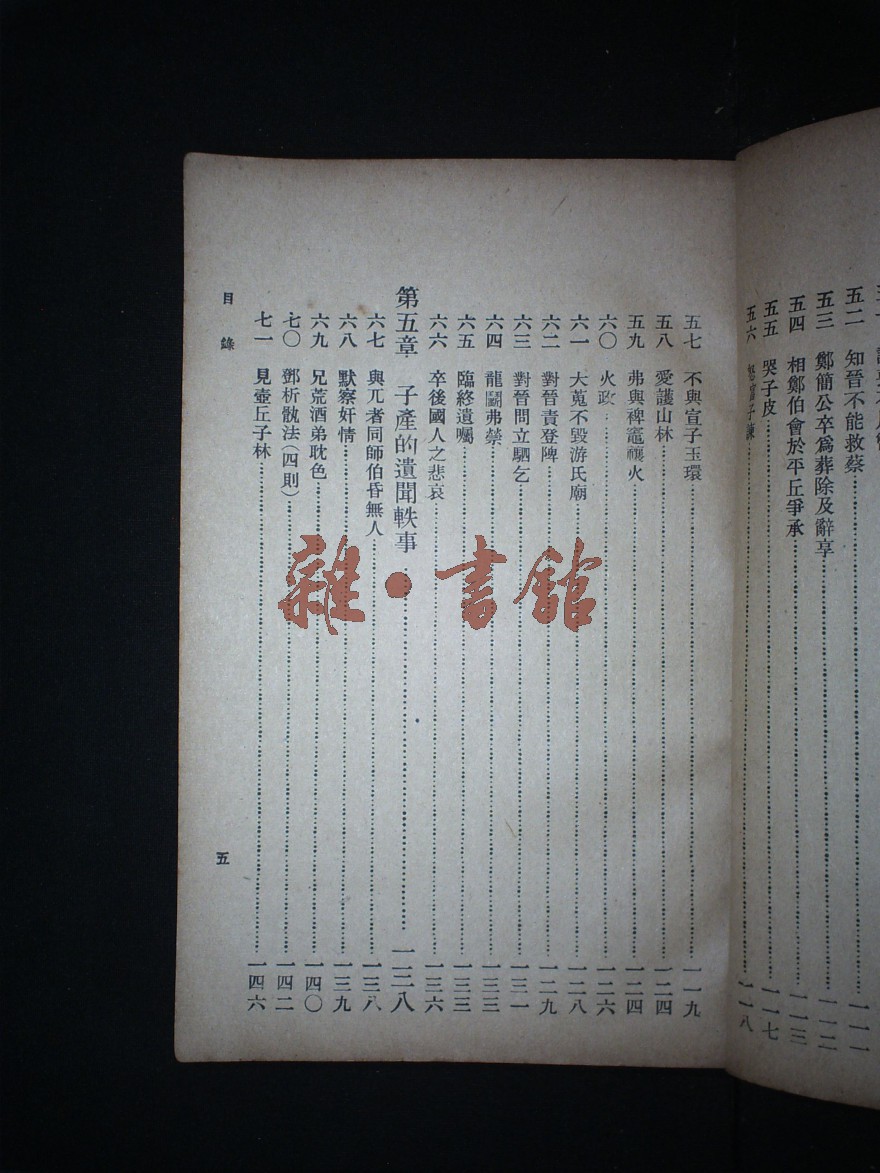 五二 知晉不能救蔡 一一一
五三 鄭簡公卒爲葬除及辭享 一一二
五四 相鄭伯會於平丘爭承 一一三
五五 哭子皮 一一七
五六 子諫 一一八
五七 不與宣子玉環 一一九
五八 愛護山林 一二四
五九 弗與裨竈禳火 一二四
六〇 火政 一二六
六一 大蒐不毀游氏廟 一二八
六二 對晉責登陴 一二九
六三 對晉問立駟乞 一三一
六四 龍鬭弗禜 一三三
六五 臨終遺囑 一三三
六六 卒後國人之悲哀 一三六
第五章 子產的遺聞軼事 一三八
六七 與兀者同師伯昏無人 一三八
六八 默察奸情 一三九
六九 兄荒酒弟耽色 一四〇
七〇 鄧析骩法(四則) 一四二
七一 見壺丘子林 一四六
目錄
五
雜·書館